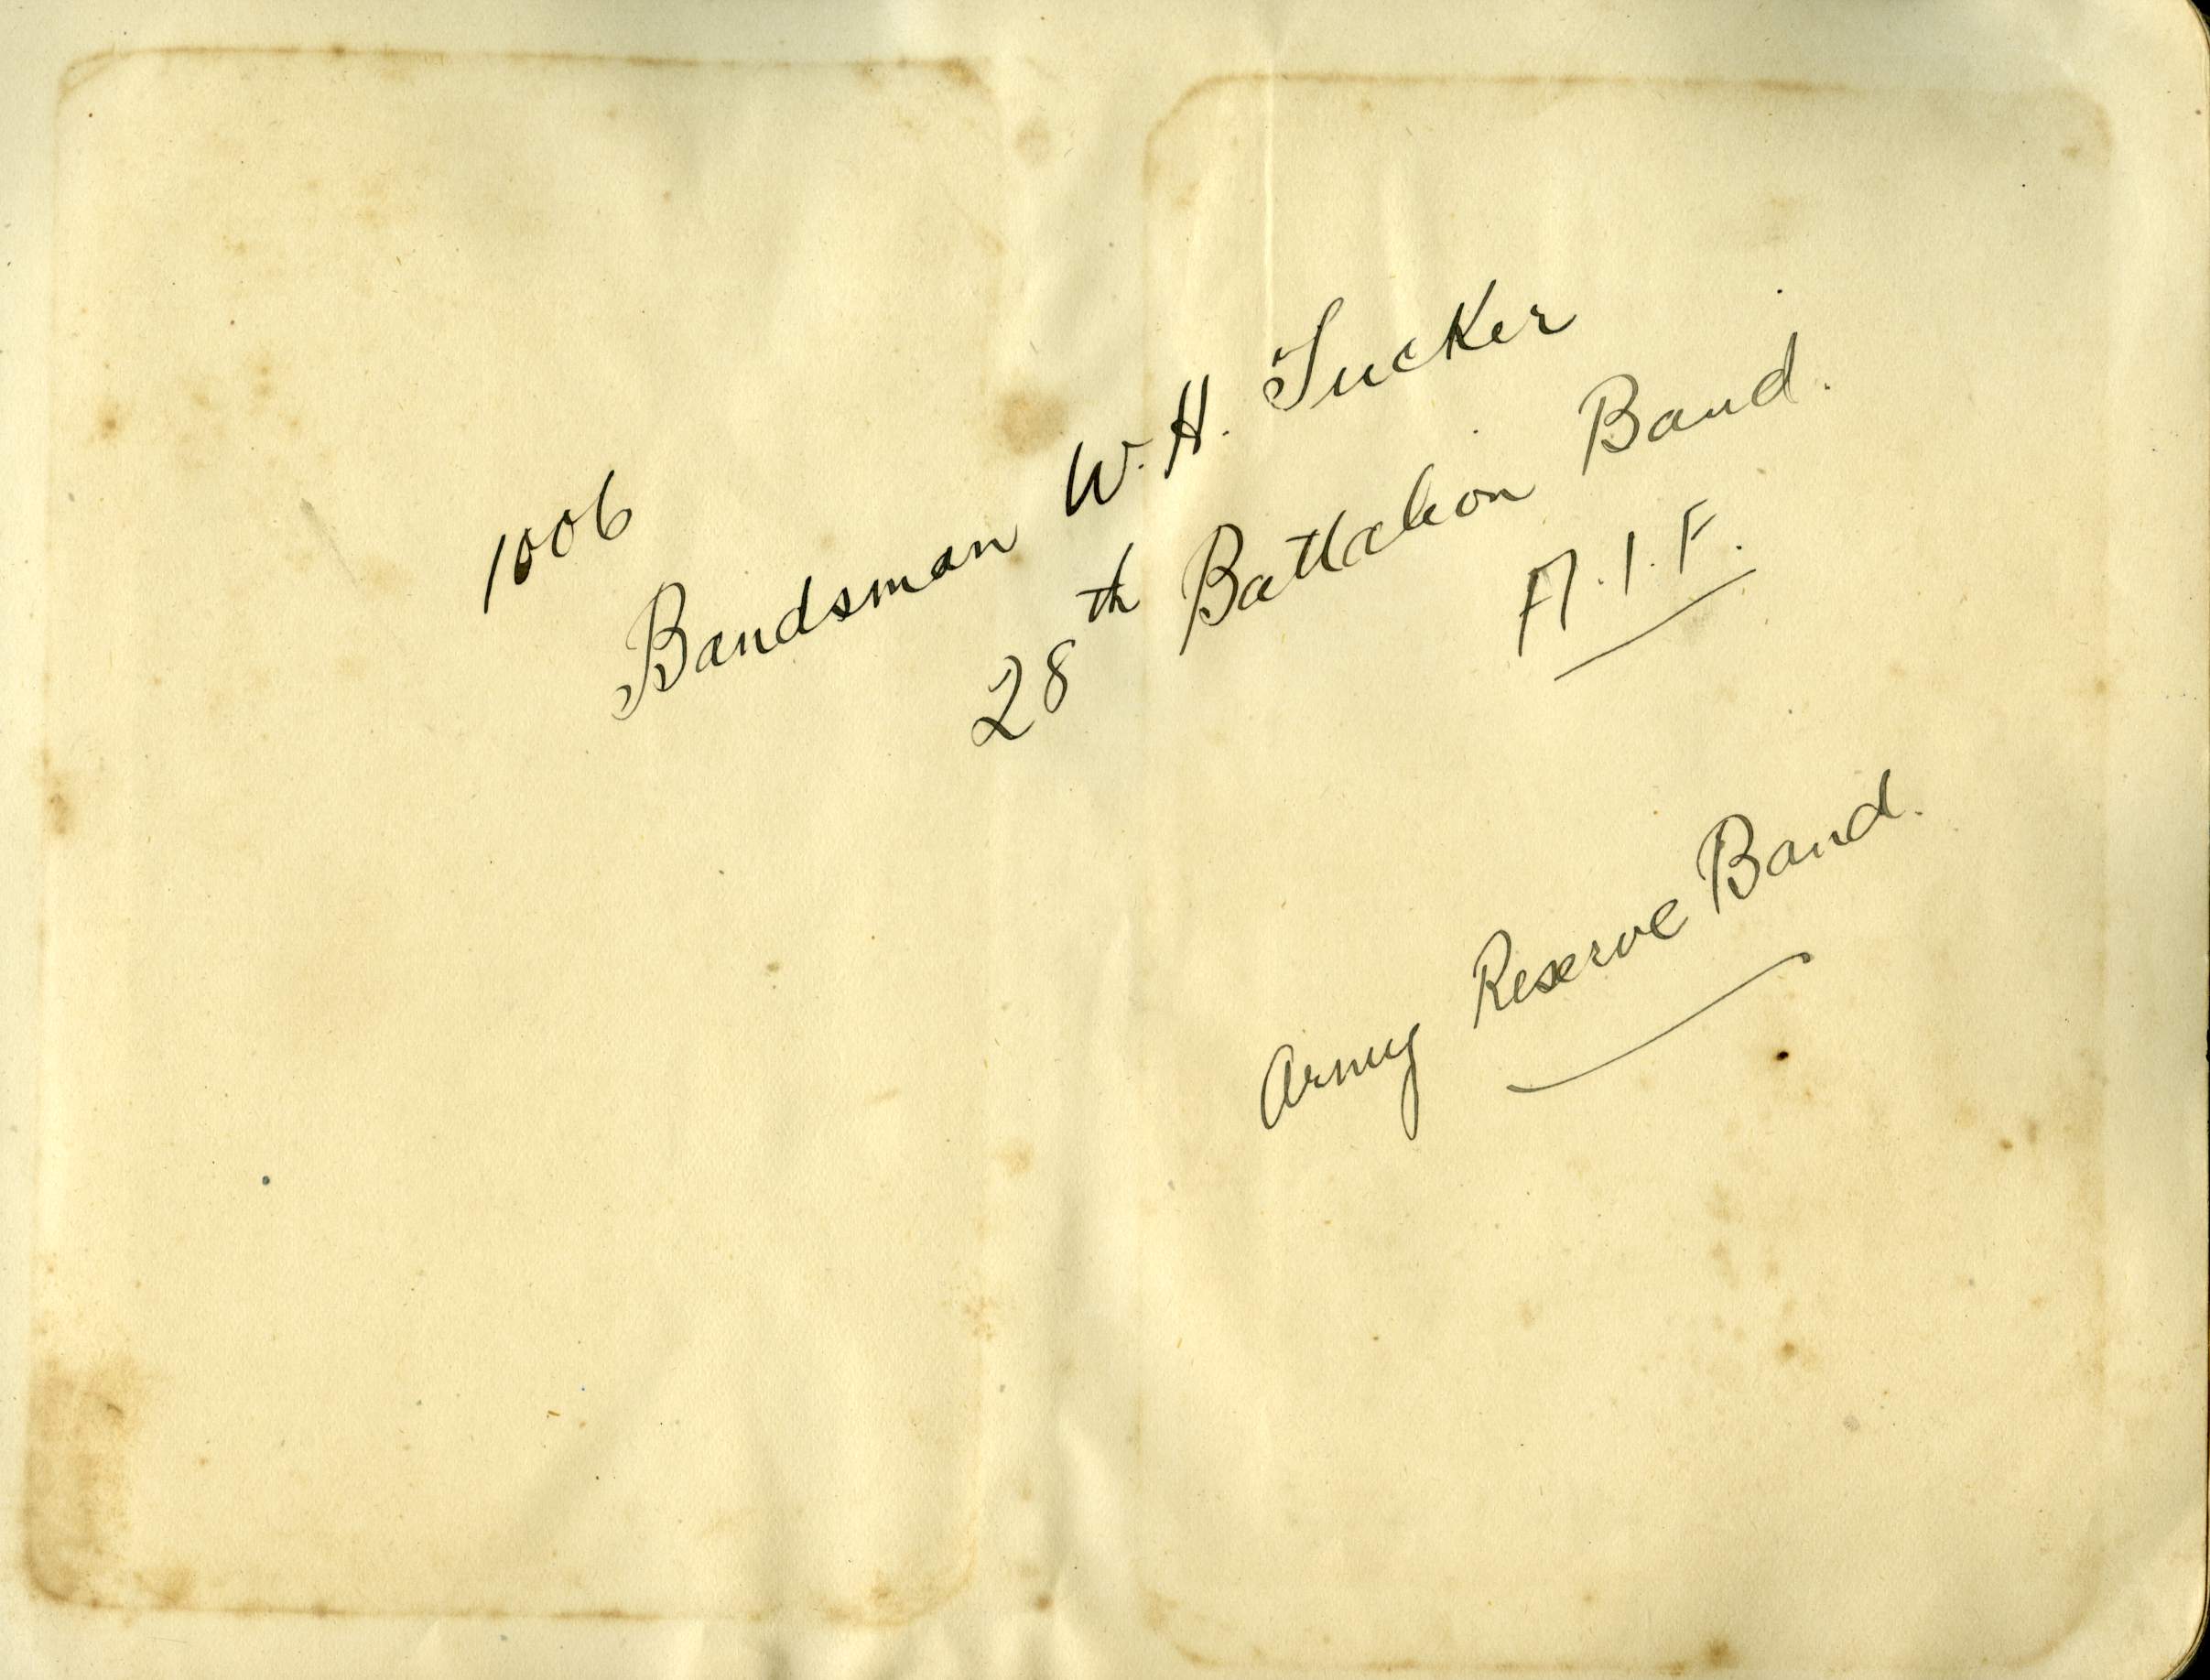 1006
Bandsman W. H. Tucker
28th Battalion Band.
A.I.F.
Army Reserve Band.